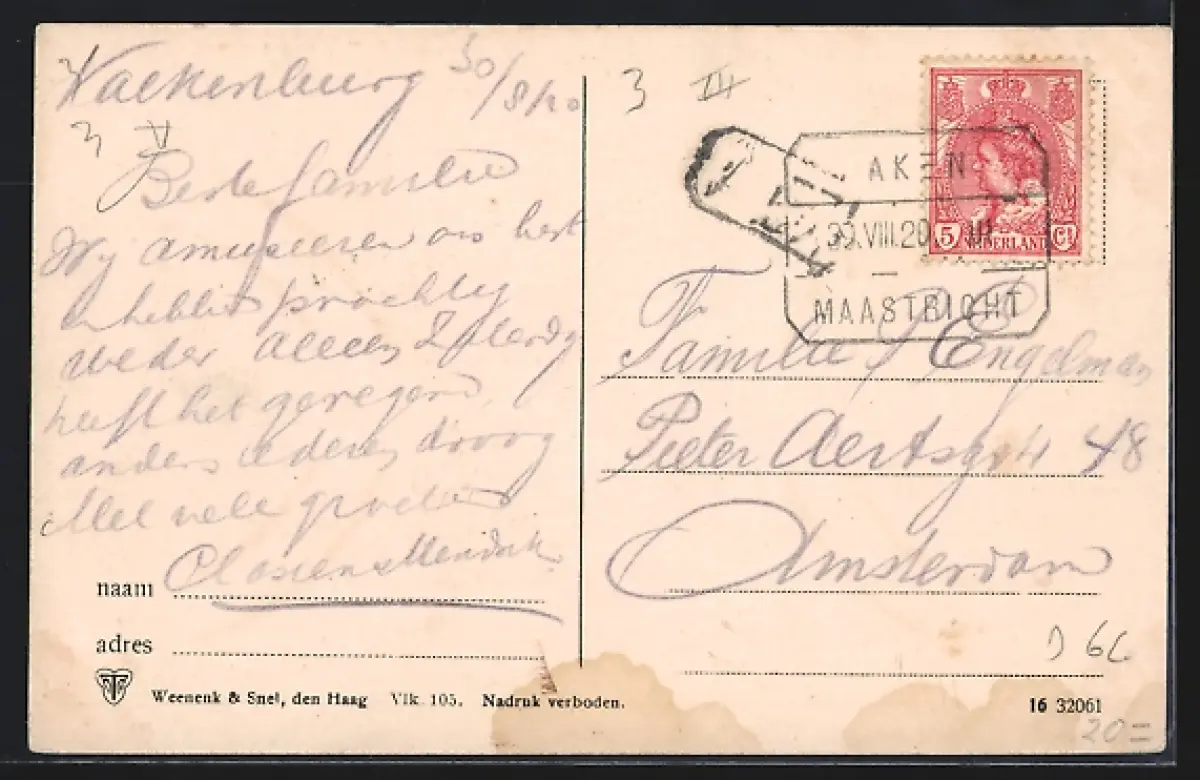 Valkenburg 30/8/20
3 V
Beste familie
Wij amuseeren ons best
en hebben prachtig
weder alleen Zaterdag
heeft het geregend,
anders iederen droog
Met vele groeten
naam
adres
Weenenk & Snel, den Haag Vlk. 105. Nadruk verboden.
3 III
AKEN
30.VIII.20 III
MAASTRICHT
5 NEDERLAND Ct
Familie Engelman
Pieter Aertszstr 48
Amsterdam
D 6C
16 32061
20=